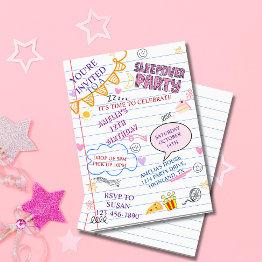 YOU'RE
INVITED
TO A
SLEEPOVER
PARTY
IT'S TIME TO CELEBRATE!
AMELIA'S
12TH
BIRTHDAY
SATURDAY
OCTOBER
14TH
DROP OFF 5PM
PICK UP 10PM
AMELIA'S HOUSE
1234 PARTY DRIVE,
HIGHLAND, TX
RSVP TO
SUSAN
123-456-7890